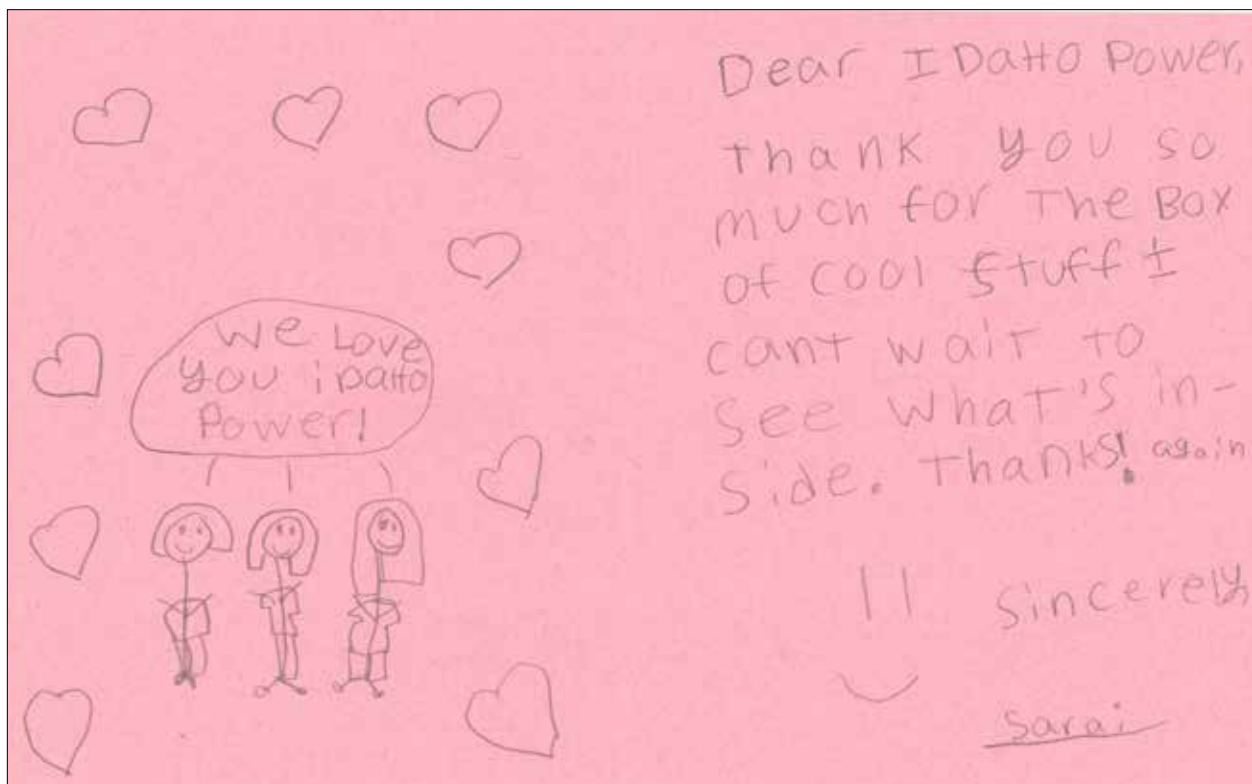 We Love
you idaHo
Power!
Dear IDaHo Power,
Thank you so
much for The Box
of cool stuff I
cant wait to
See what's in-
Side. Thanks! again
Sincerely,
Sarai